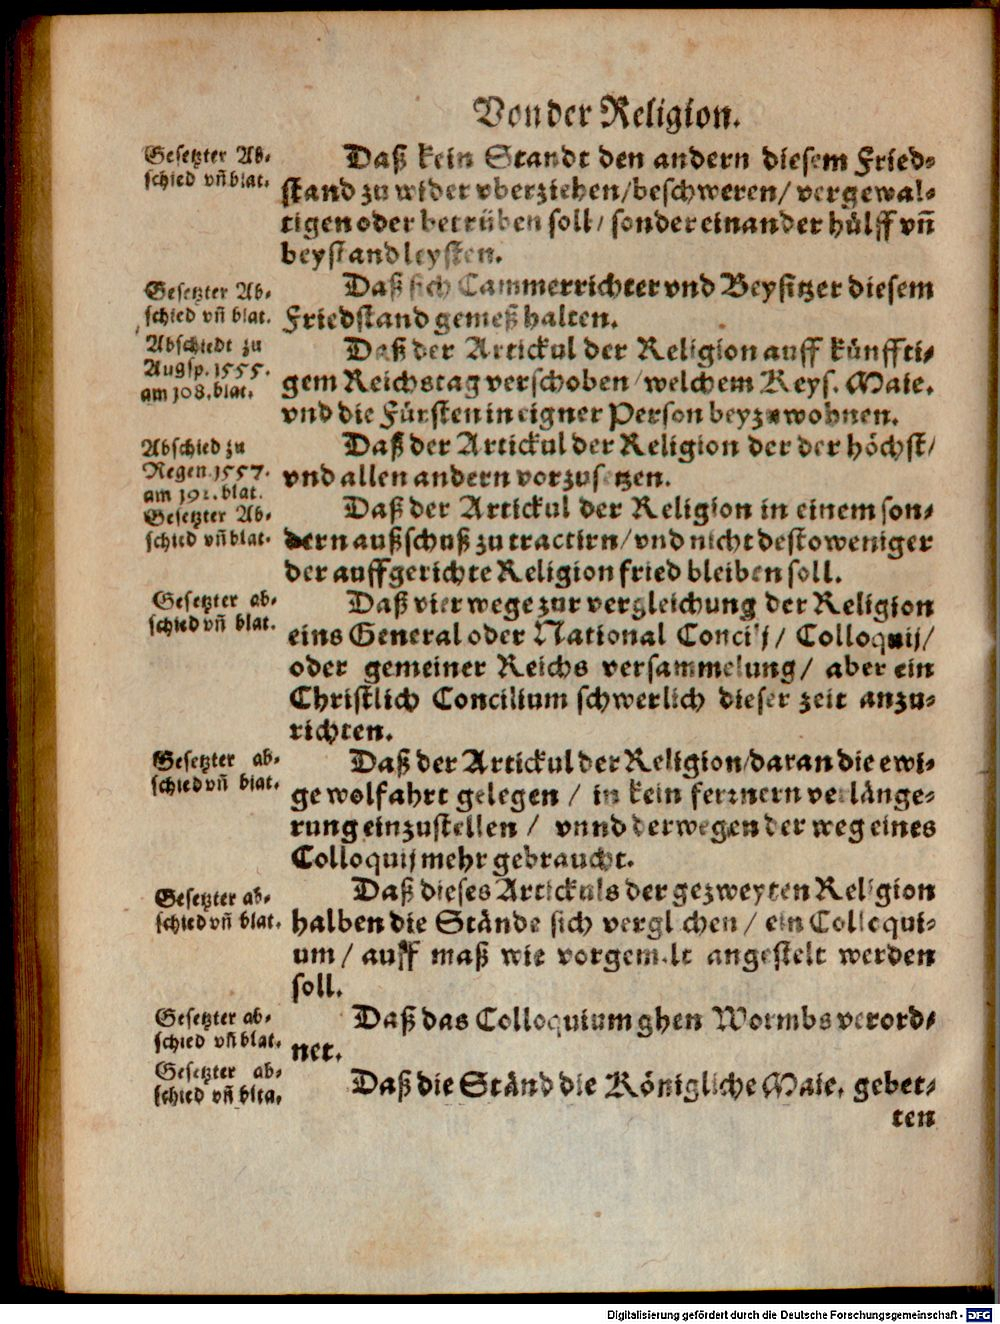 Von der Religion.
Gesetzter Ab-
schied vñ blat.
Daß kein Standt den andern diesem Fried-
stand zu wider vberziehen/beschweren/ vergewal-
tigen oder betrüben soll/ sonder einander hülff vñ
beystand leysten.
Gesetzter Ab-
schied vñ blat.
Daß sich Cammerrichter vnd Beysitzer diesem
Friedstand gemeß halten.
Abschiedt zu
Augsp. 1555.
am 108. blat.
Daß der Artickul der Religion auff künffti-
gem Reichstag verschoben/welchem Keys. Maie.
vnd die Fürsten in eigner Person beyzuwohnen.
Abschied zu
Regen 1557.
am blat.
Daß der Artickul der Religion der der höchst/
vnd allen andern vorzusetzen.
Gesetzter Ab-
schied vñ blat.
Daß der Artickul der Religion in einem son-
dern außschuß zu tractirn/vnd nicht destoweniger
der auffgerichte Religion fried bleiben soll.
Gesetzter ab-
schied vñ blat.
Daß vier wege zur vergleichung der Religion
eins General oder National Concilij/ Colloquij/
oder gemeiner Reichs versammelung/ aber ein
Christlich Concilium schwerlich dieser zeit anzu-
richten.
Gesetzter ab-
schied vñ blat.
Daß der Artickul der Religion/daran die ewi-
ge wolfahrt gelegen / in kein fernern verlänge-
rung einzustellen / vnnd derwegen der weg eines
Colloquij mehr gebraucht.
Gesetzter ab-
schied vñ blat.
Daß dieses Artickuls der gezweyten Religion
halben die Stände sich verglichen / ein Colloqui-
um / auff maß wie vorgemelt angestelt werden
soll.
Gesetzter ab-
schied vñ blat.
Daß das Colloquium ghen Wormbs verord-
net.
Gesetzter ab-
schied vñ blta.
Daß die Ständ die Königliche Maie. gebet-
ten
Digitalisierung gefördert durch die Deutsche Forschungsgemeinschaft - DFG